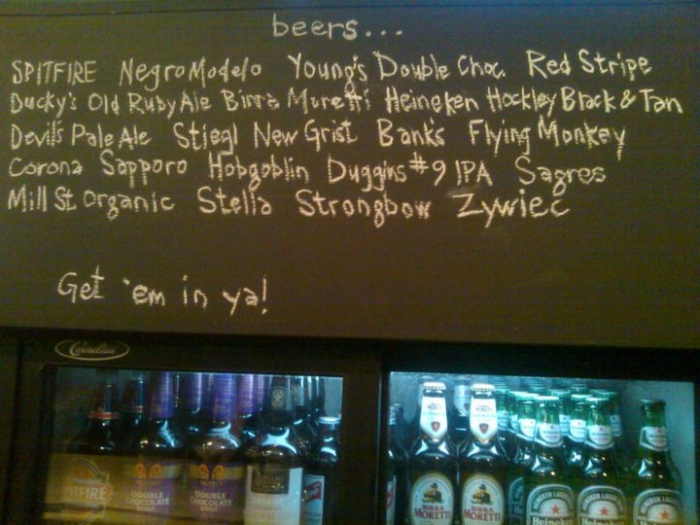 beers...
SPITFIRE NegroModelo Young's Double Choc. Red Stripe
Ducky's Old Ruby Ale Birra Moretti Heineken Hockley Black & Tan
Devil's Pale Ale Stiegl New Grist Bank's Flying Monkey
Corona Sapporo Hobgoblin Duggins #9 IPA Sagres
Mill St. Organic Stella Strongbow Zywiec
Get 'em in ya!
Cornelius
SPITFIRE
DOUBLE CHOCOLATE
DOUBLE CHOCOLATE
BIRRA MORETTI
BIRRA MORETTI
Heineken